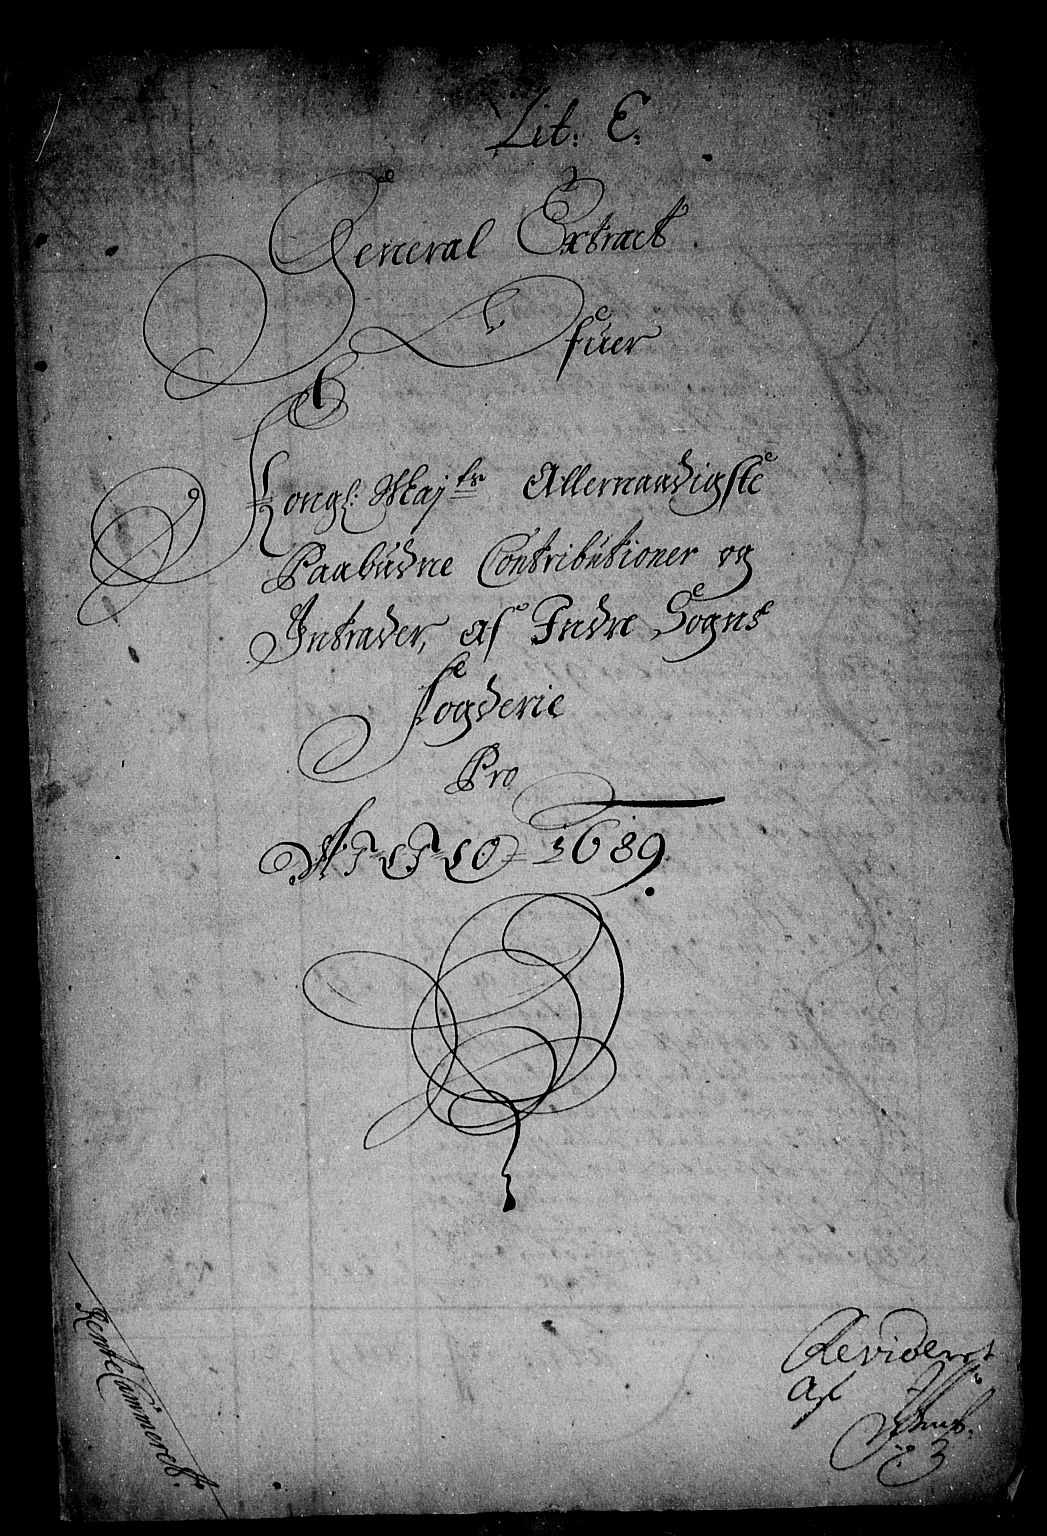 Lit: E:
General Extract
Ofuer
Kongl: Maj:ts Allernaadigste
Paabudne Contributioner og
Intrader, af Indre Sogns
Fogderie
Pro
ANNO 1689
Revideret
af
RenteCammeret.